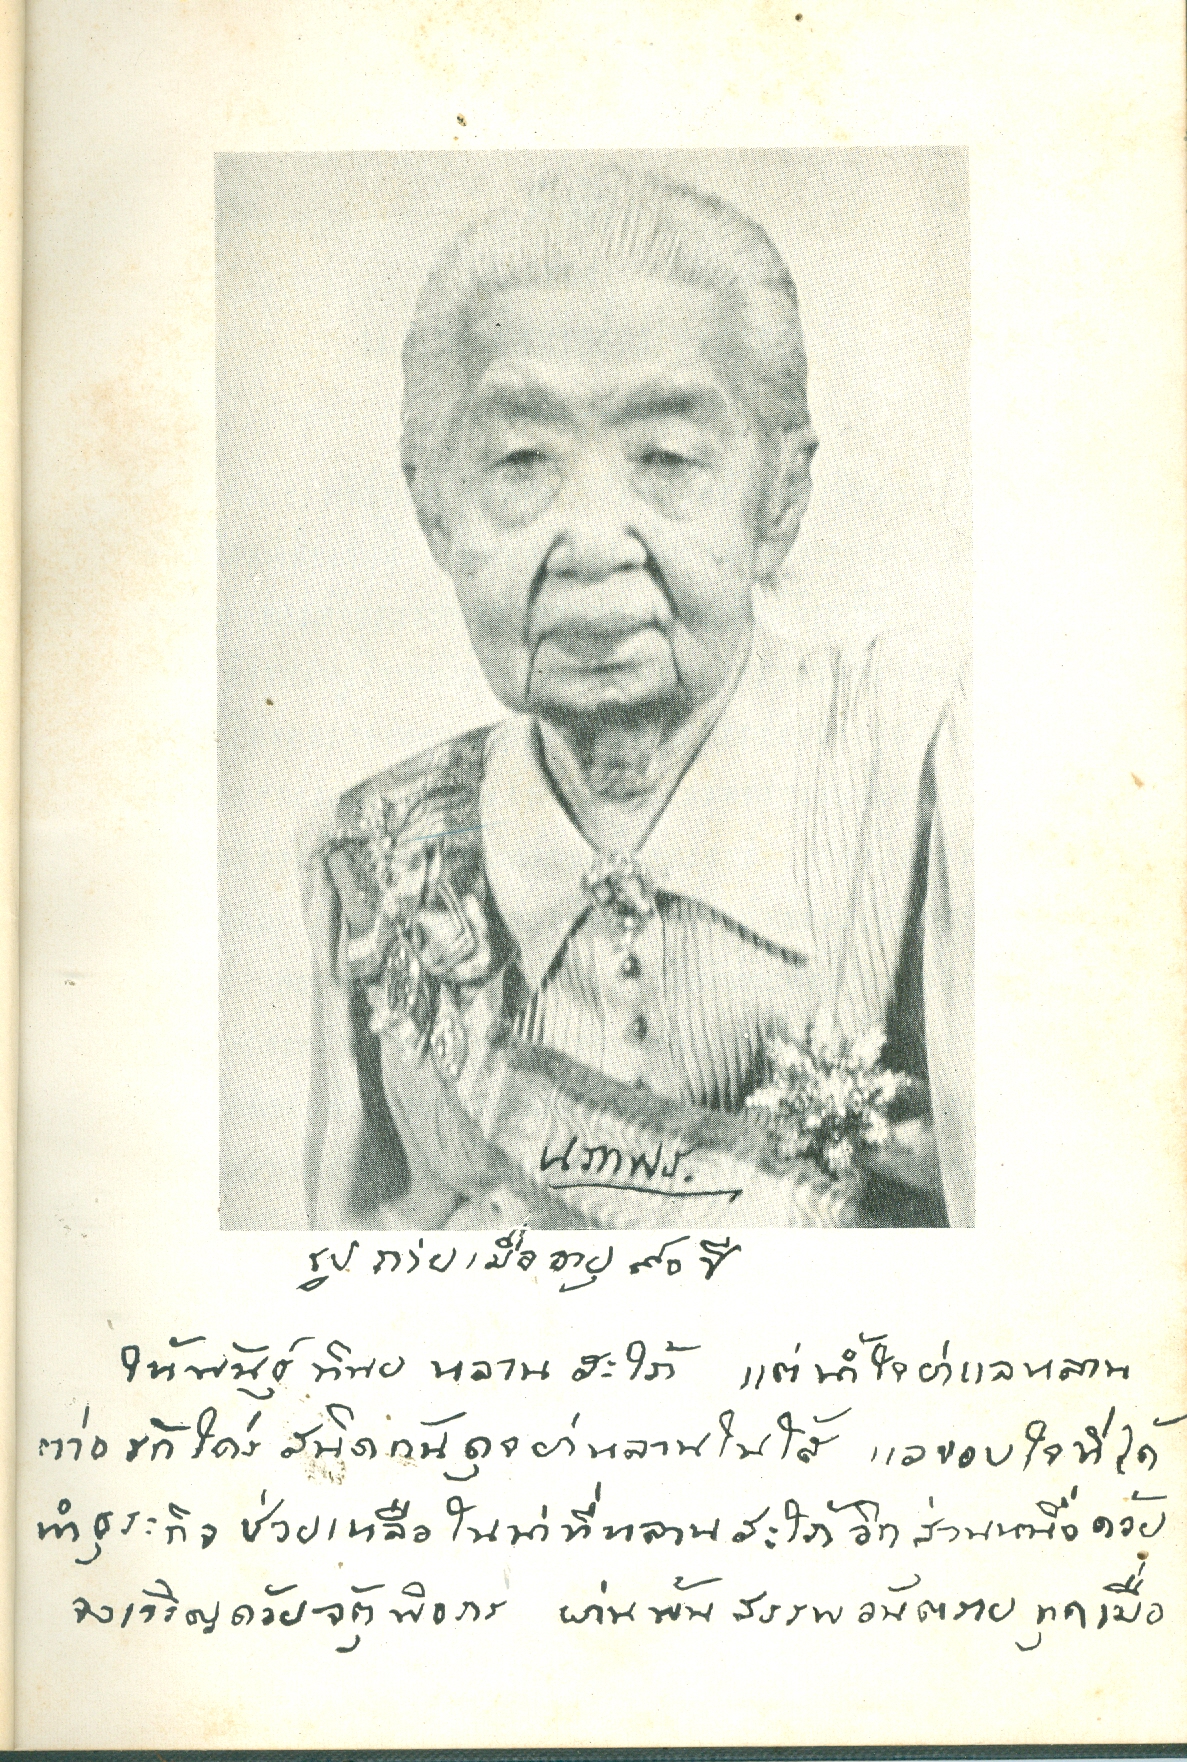 นราพร.
รูปถ่ายเมื่ออายุ ๙๐ ปี
ให้พันธุ์ทิพย หลานสะใภ้ แต่น้ำใจย่าแลหลาน
ต่อ รักใคร่ สนิดกันดุจย่าหลานในไส้ แลขอบใจที่ได้
ทำธุระกิจ ช่วยเหลือในน่าที่หลานสะใภ้อีกส่วนหนึ่งด้วย
จงเจริญด้วยจตุพิธภร ผ่านพ้นสรรพอันตรายทุกเมื่อ